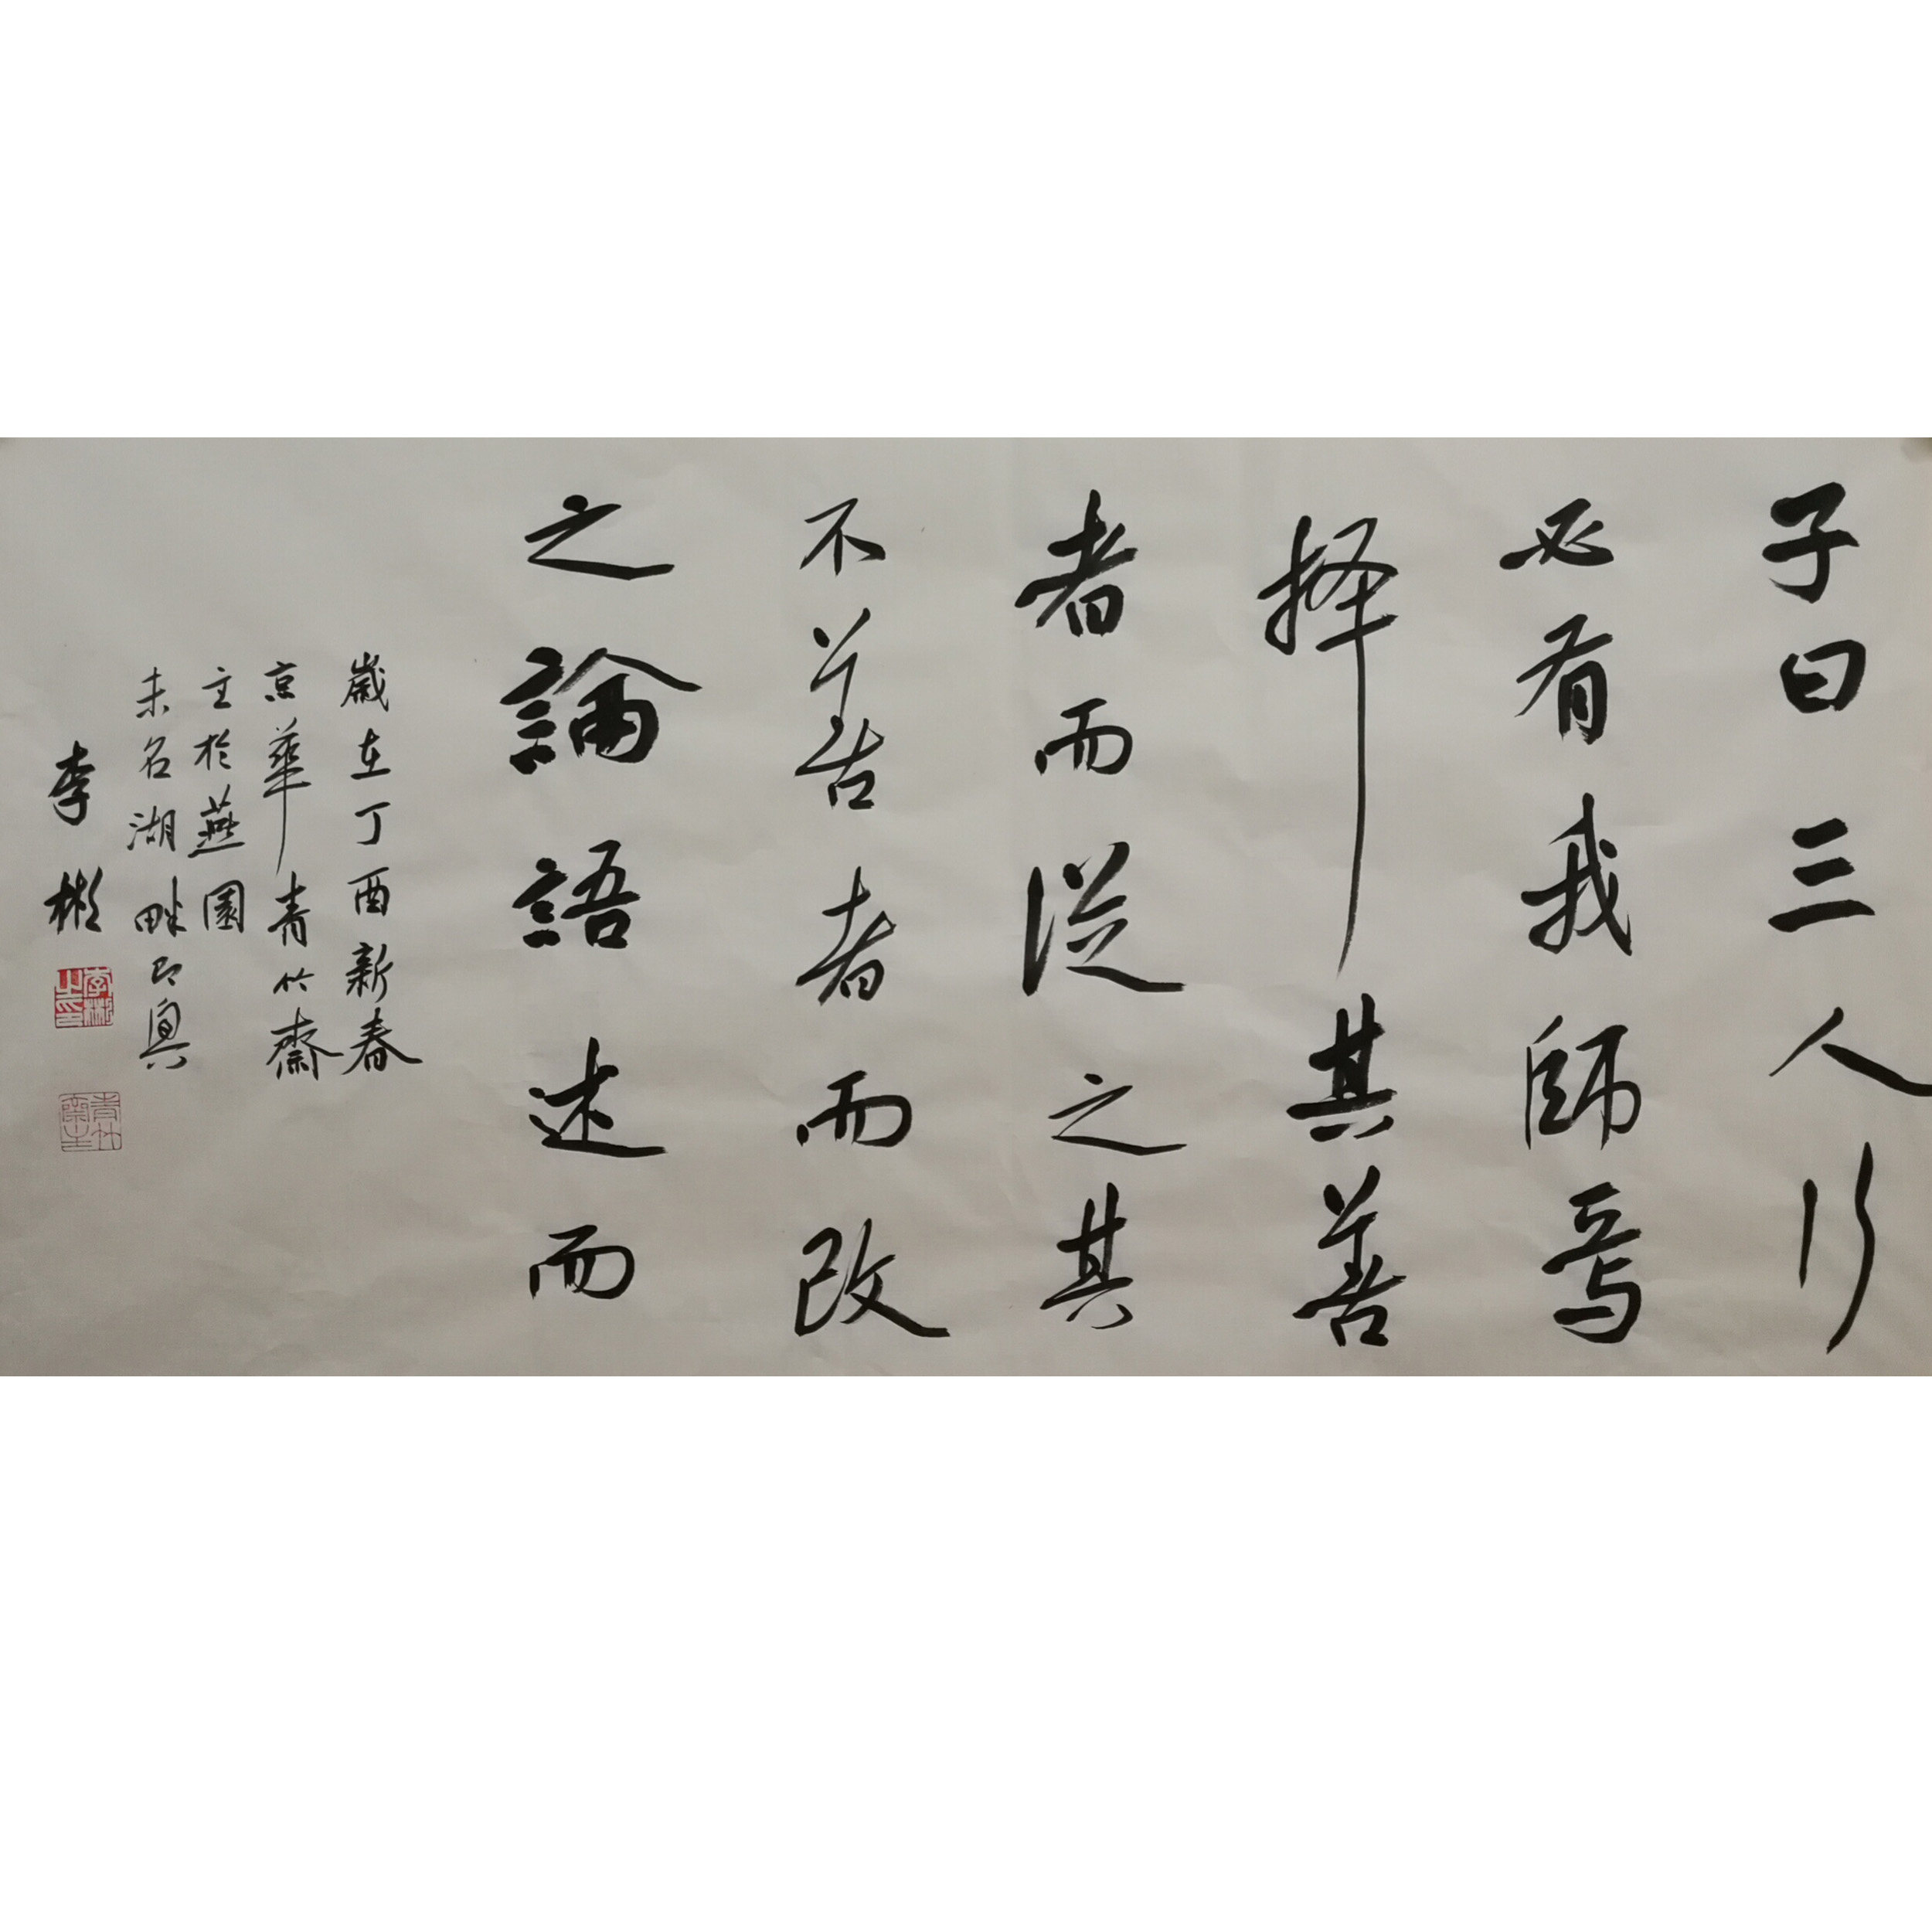 子曰三人行
必有我師焉
择其善
者而從之其
不善者而改
之論語述而
歲在丁酉新春
京華青竹齋
主於燕園
未名湖畔即興
李彬
李彬之印
青竹齋主